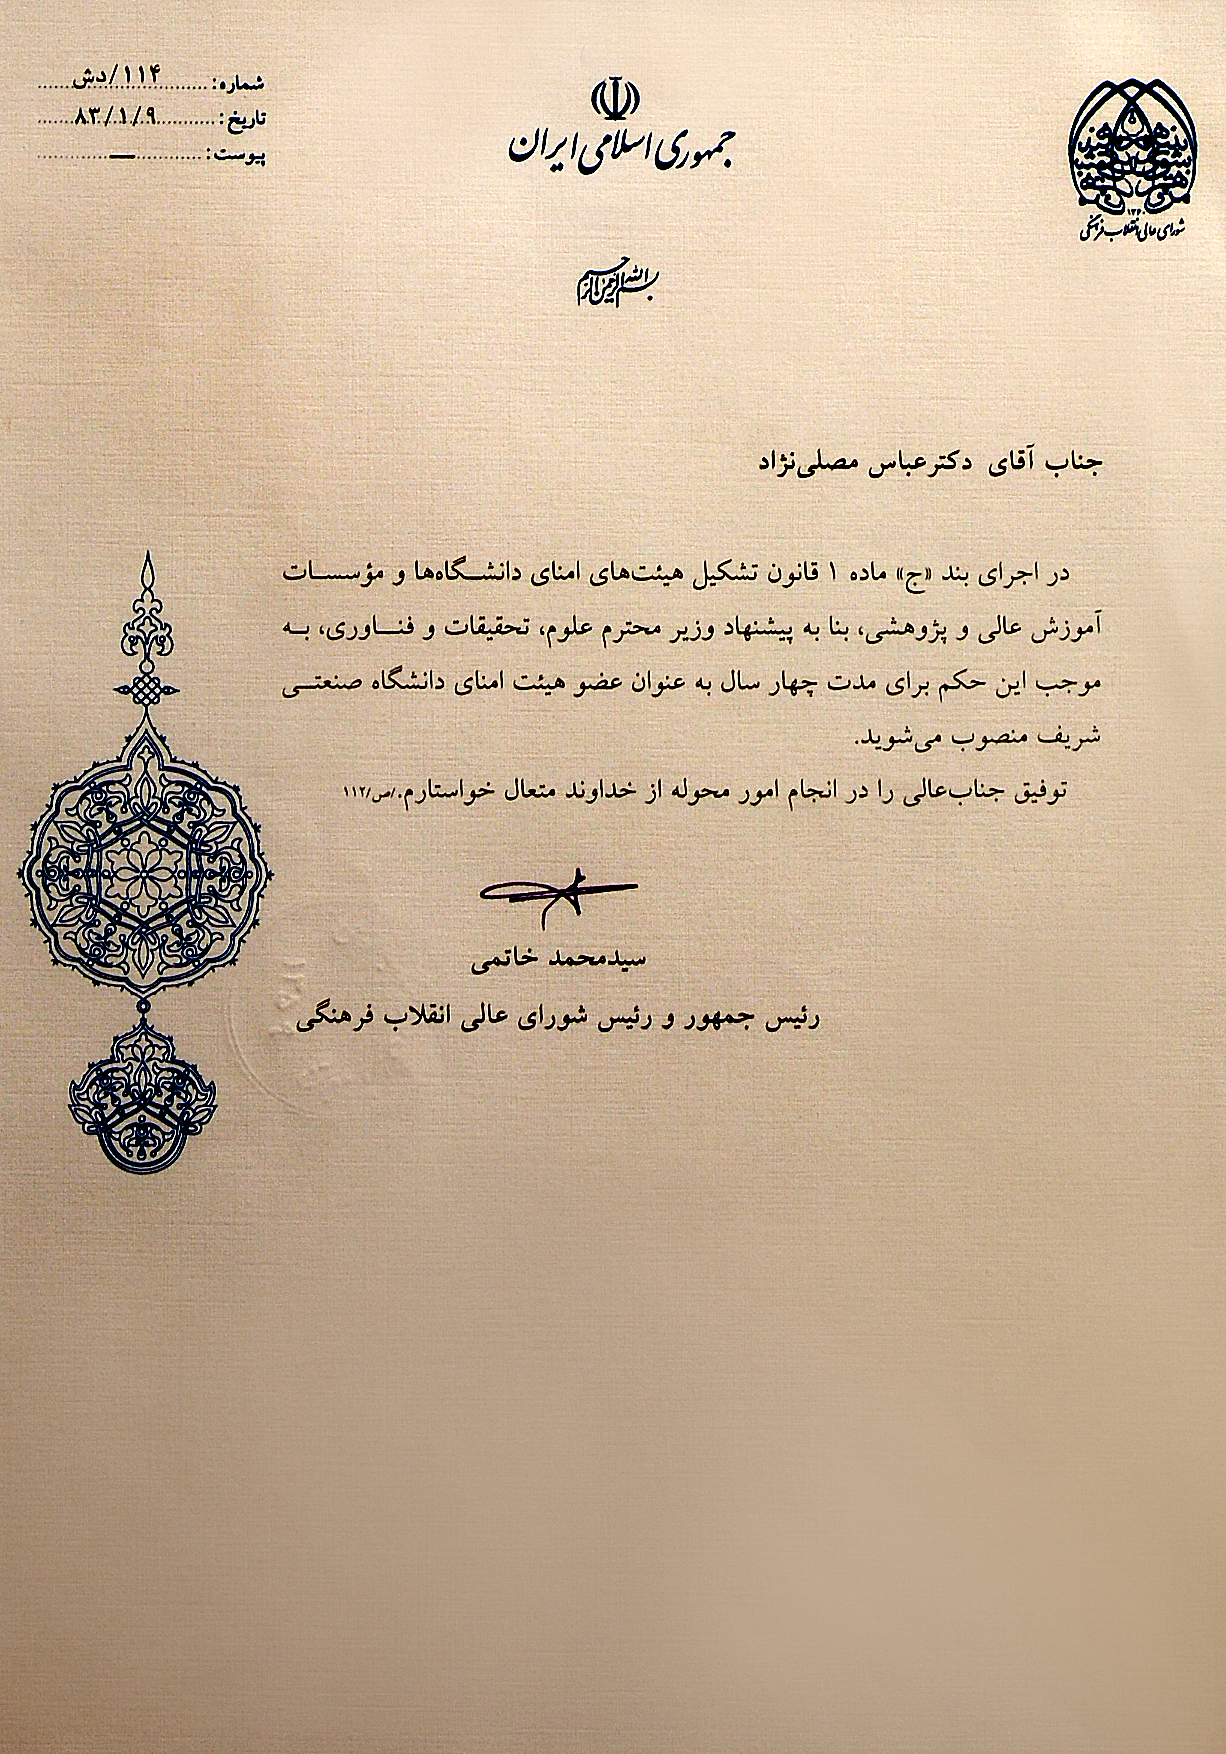 شماره: ۱۱۴/دش
تاریخ: ۸۳/۱/۹
پیوست: ــ
جمهوری اسلامی ایران
۱۳۶۰
شورای عالی انقلاب فرهنگی
بسم الله الرحمن الرحیم
جناب آقای دکتر عباس مصلی‌نژاد
در اجرای بند «ج» ماده ۱ قانون تشکیل هیئت‌های امنای دانشگاه‌ها و مؤسسات
آموزش عالی و پژوهشی، بنا به پیشنهاد وزیر محترم علوم، تحقیقات و فناوری، به
موجب این حکم برای مدت چهار سال به عنوان عضو هیئت امنای دانشگاه صنعتی
شریف منصوب می‌شوید.
توفیق جناب‌عالی را در انجام امور محوله از خداوند متعال خواستارم./ص/۱۱۲
سیدمحمد خاتمی
رئیس جمهور و رئیس شورای عالی انقلاب فرهنگی